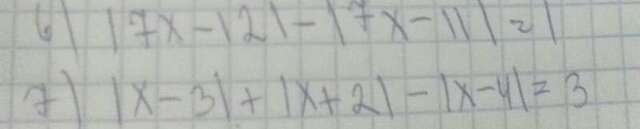 6) |7x-12|-|7x-11|=1
7) |x-3|+|x+2|-|x-4|=3